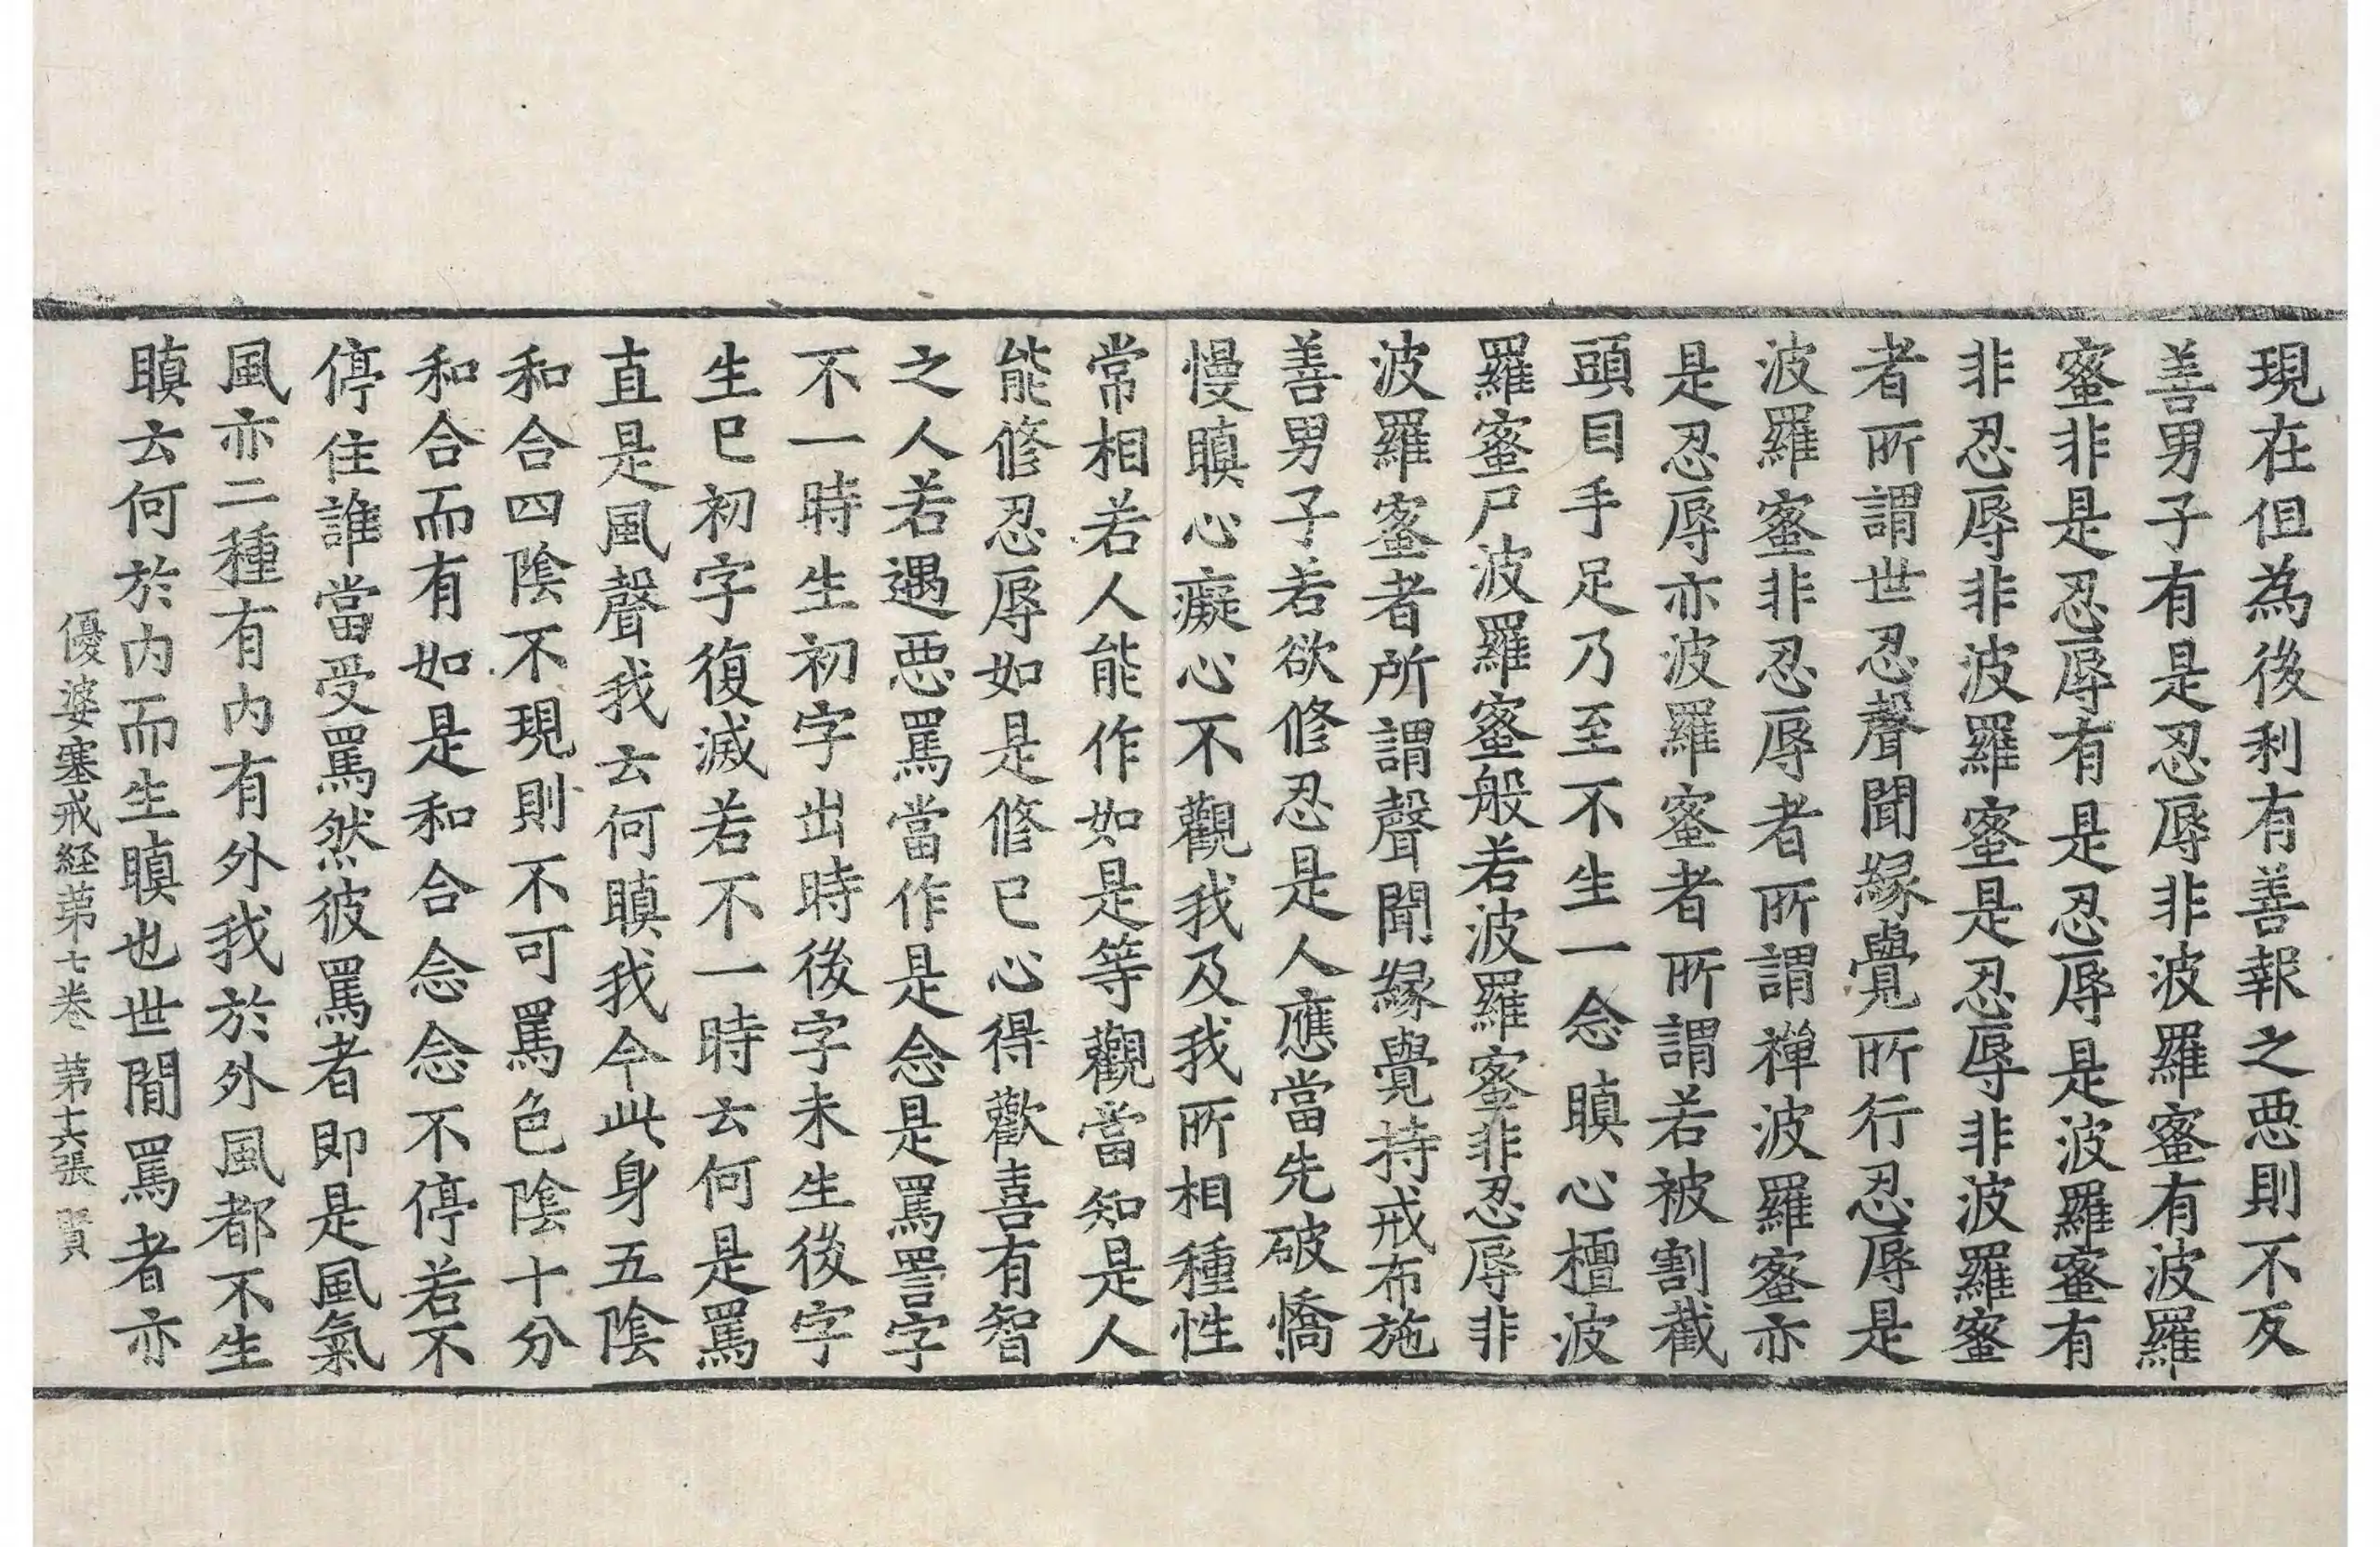 現在但為後利有善報之惡則不反
善男子有是忍辱非波羅蜜有波羅
蜜非是忍辱有是忍辱是波羅蜜有
非忍辱非波羅蜜是忍辱非波羅蜜
者所謂世忍聲聞緣覺所行忍辱是
波羅蜜非忍辱者所謂禪波羅蜜亦
是忍辱亦波羅蜜者所謂若被割截
頭目手足乃至不生一念瞋心檀波
羅蜜尸波羅蜜般若波羅蜜非忍辱非
波羅蜜者所謂聲聞緣覺持戒布施
善男子若欲修忍是人應當先破憍
慢瞋心癡心不觀我及我所相種性
常相若人能作如是等觀當知是人
能修忍辱如是修已心得歡喜有智
之人若遇惡罵當作是念是罵詈字
不一時生初字出時後字未生後字
生已初字復滅若不一時云何是罵
直是風聲我云何瞋我今此身五陰
和合四陰不現則不可罵色陰十分
和合而有如是和合念念不停若不
停住誰當受罵然彼罵者即是風氣
風亦二種有內有外我於外風都不生
瞋云何於內而生瞋也世間罵者亦
優婆塞戒経第七卷 第十六張 賢